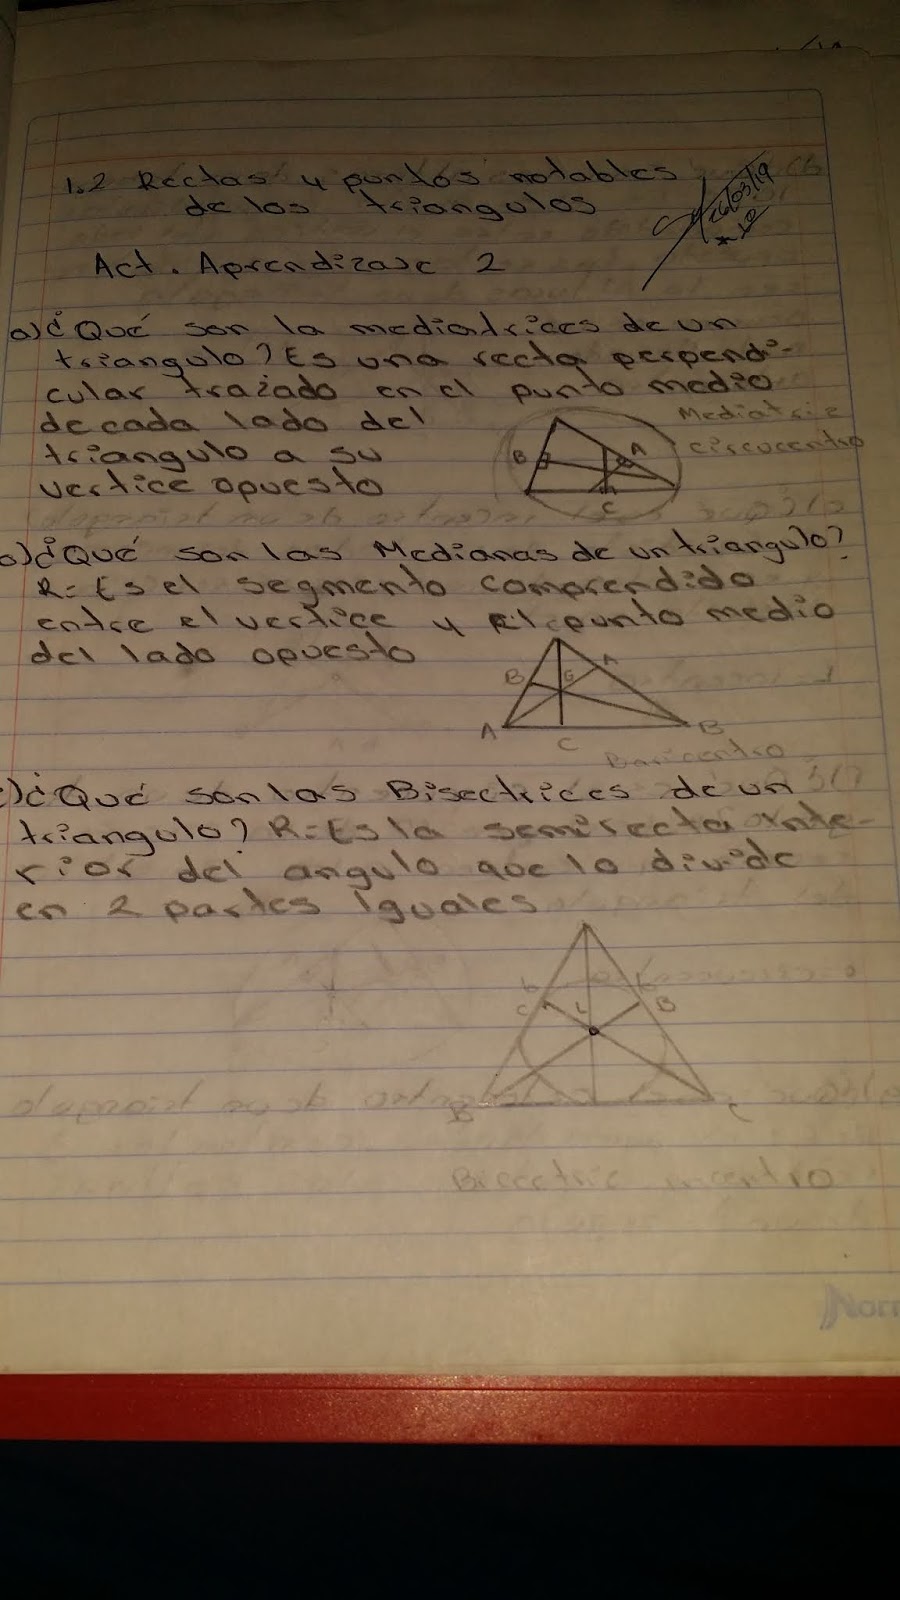 1.2 Rectas y puntos notables
de los triangulos
26/03/19
Act. Aprendizaje 2
a)¿Qué son la mediatrices de un
triangulo? Es una recta perpendi-
cular trazado en el punto medio
de cada lado del
triangulo a su
vertice opuesto
Mediatriz
circucentro
B
A
C
b)¿Qué son las Medianas de un triangulo?
R= Es el segmento comprendido
entre el vertice y el punto medio
del lado opuesto
B
G
A
A
C
B
Baricentro
c)¿Qué son las Bisectrices de un
triangulo? R= Es la semirecta inte-
rior del angulo que lo divide
en 2 partes Iguales
C
L
B
B
C
Bicectric incentro
Norm